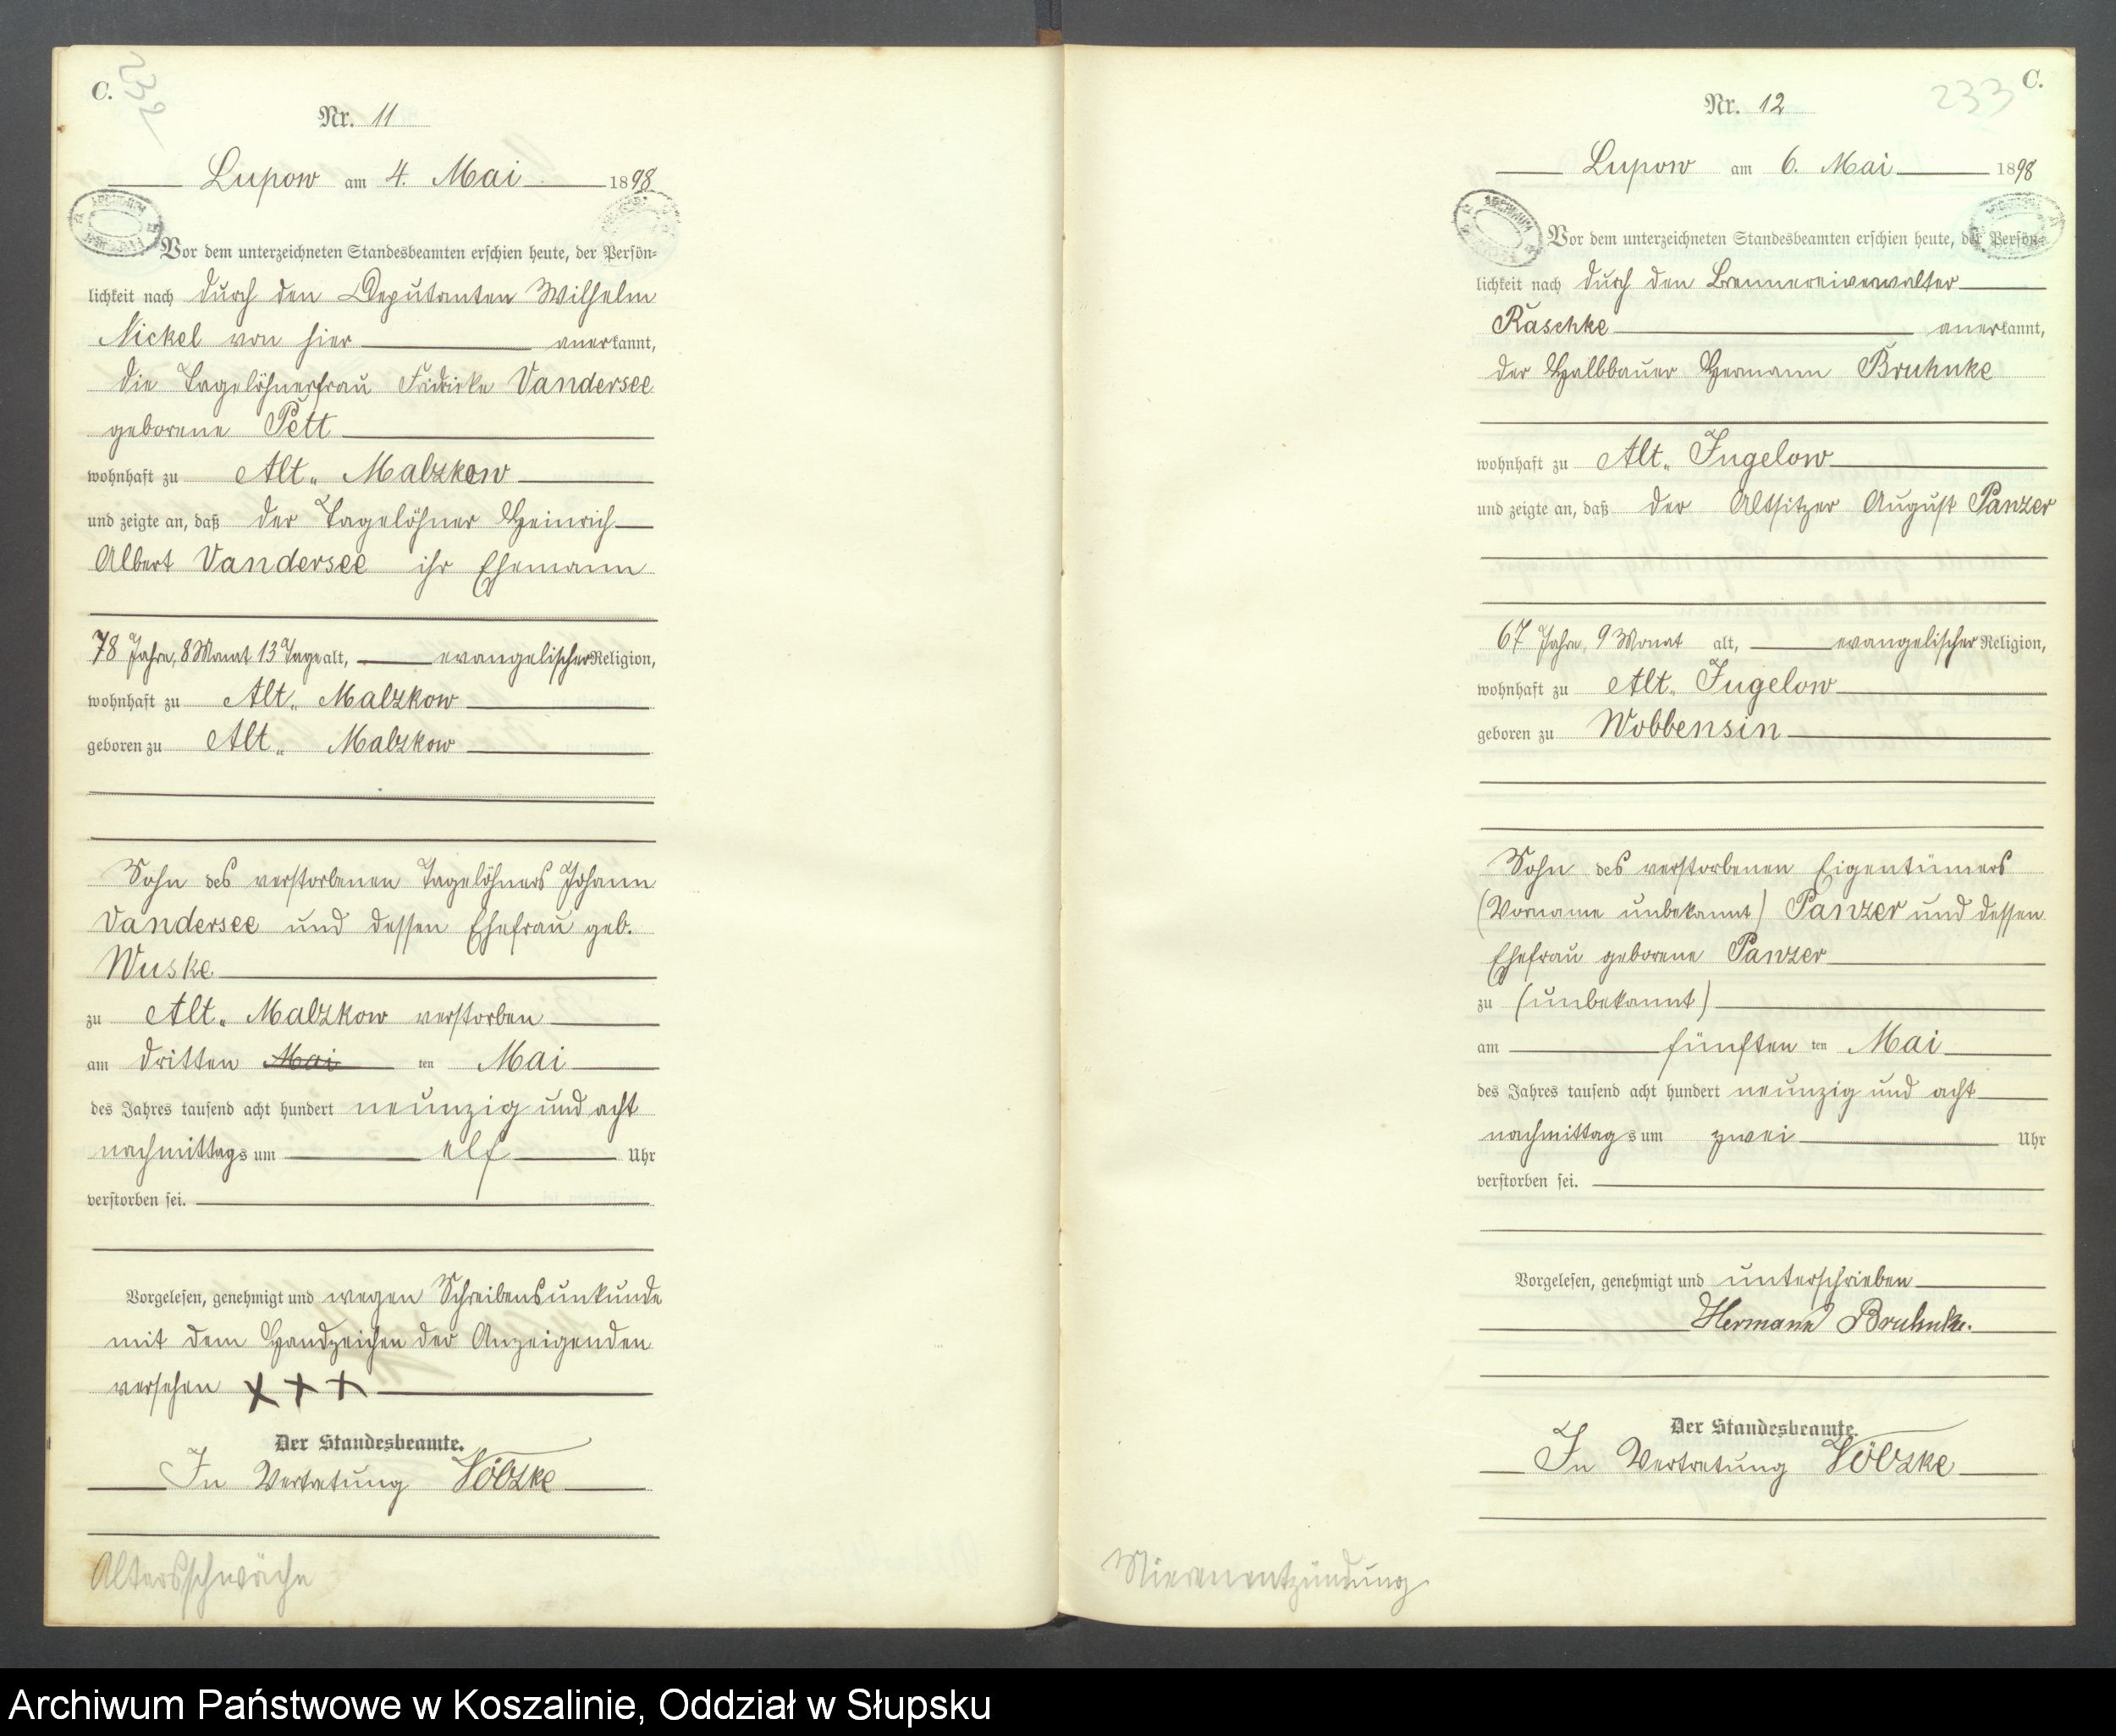 C.
232
Nr. 11
Lupow am 4. Mai 1898
Vor dem unterzeichneten Standesbeamten erschien heute, der Persön=
lichkeit nach durch den Deputanten Wilhelm
Nickel von hier anerkannt,
die Tagelöhnerfrau Fridricke Vandersee
geborene Pett
wohnhaft zu Alt= Malzkow
und zeigte an, daß der Tagelöhner Heinrich
Albert Vandersee ihr Ehemann
78 Jahre, 8 Monat 13 Tage alt, evangelischer Religion,
wohnhaft zu Alt= Malzkow
geboren zu Alt= Malzkow
Sohn des verstorbenen Tagelöhners Johann
Vandersee und dessen Ehefrau geb.
Wuske
zu Alt= Malzkow verstorben
am dritten Mai ten Mai
des Jahres tausend acht hundert neunzig und acht
nachmittags um elf Uhr
verstorben sei.
Vorgelesen, genehmigt und wegen Schreibensunkunde
mit dem Handzeichen der Anzeigenden
versehen + + +
Der Standesbeamte.
In Vertretung Völzke
Altersschwäche
C.
233
Nr. 12
Lupow am 6. Mai 1898
Vor dem unterzeichneten Standesbeamten erschien heute, der Persön=
lichkeit nach durch den Brennereiverwalter
Raschke anerkannt,
der Halbbauer Hermann Bruhnke
wohnhaft zu Alt= Jugelow
und zeigte an, daß der Altsitzer August Panzer
67 Jahre, 9 Monat alt, evangelischer Religion,
wohnhaft zu Alt= Jugelow
geboren zu Wobbensin
Sohn des verstorbenen Eigentümers
(Vorname unbekannt) Panzer und dessen
Ehefrau geborene Panzer
zu (unbekannt)
am fünften ten Mai
des Jahres tausend acht hundert neunzig und acht
nachmittags um zwei Uhr
verstorben sei.
Vorgelesen, genehmigt und unterschrieben
Hermann Bruhnke.
Der Standesbeamte.
In Vertretung Völzke
Nierenentzündung
Archiwum Państwowe w Koszalinie, Oddział w Słupsku